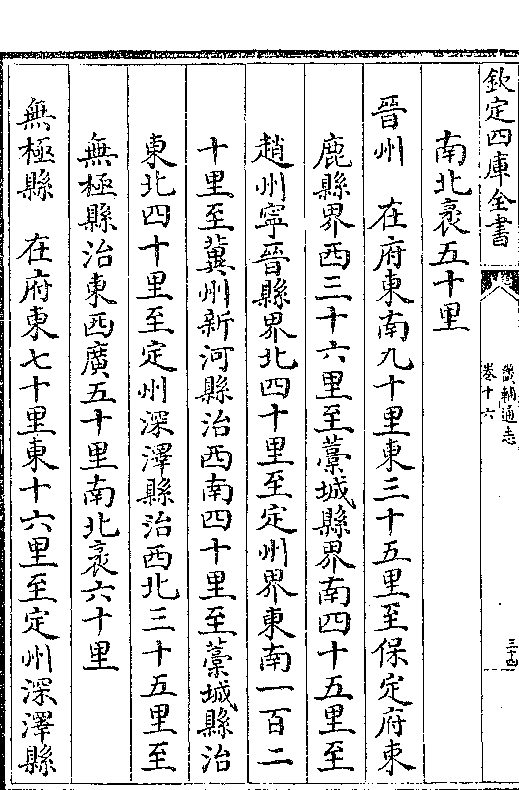 欽定四庫全書
畿輔通志
卷十六
三十四
南北袤五十里
晉州　在府東南九十里東三十五里至保定府東
鹿縣界西三十六里至藁城縣界南四十五里至
趙州寧晉縣界北四十里至定州界東南一百二
十里至冀州新河縣治西南四十里至藁城縣治
東北四十里至定州深澤縣治西北三十五里至
無極縣治東西廣五十里南北袤六十里
無極縣　在府東七十里東十六里至定州深澤縣